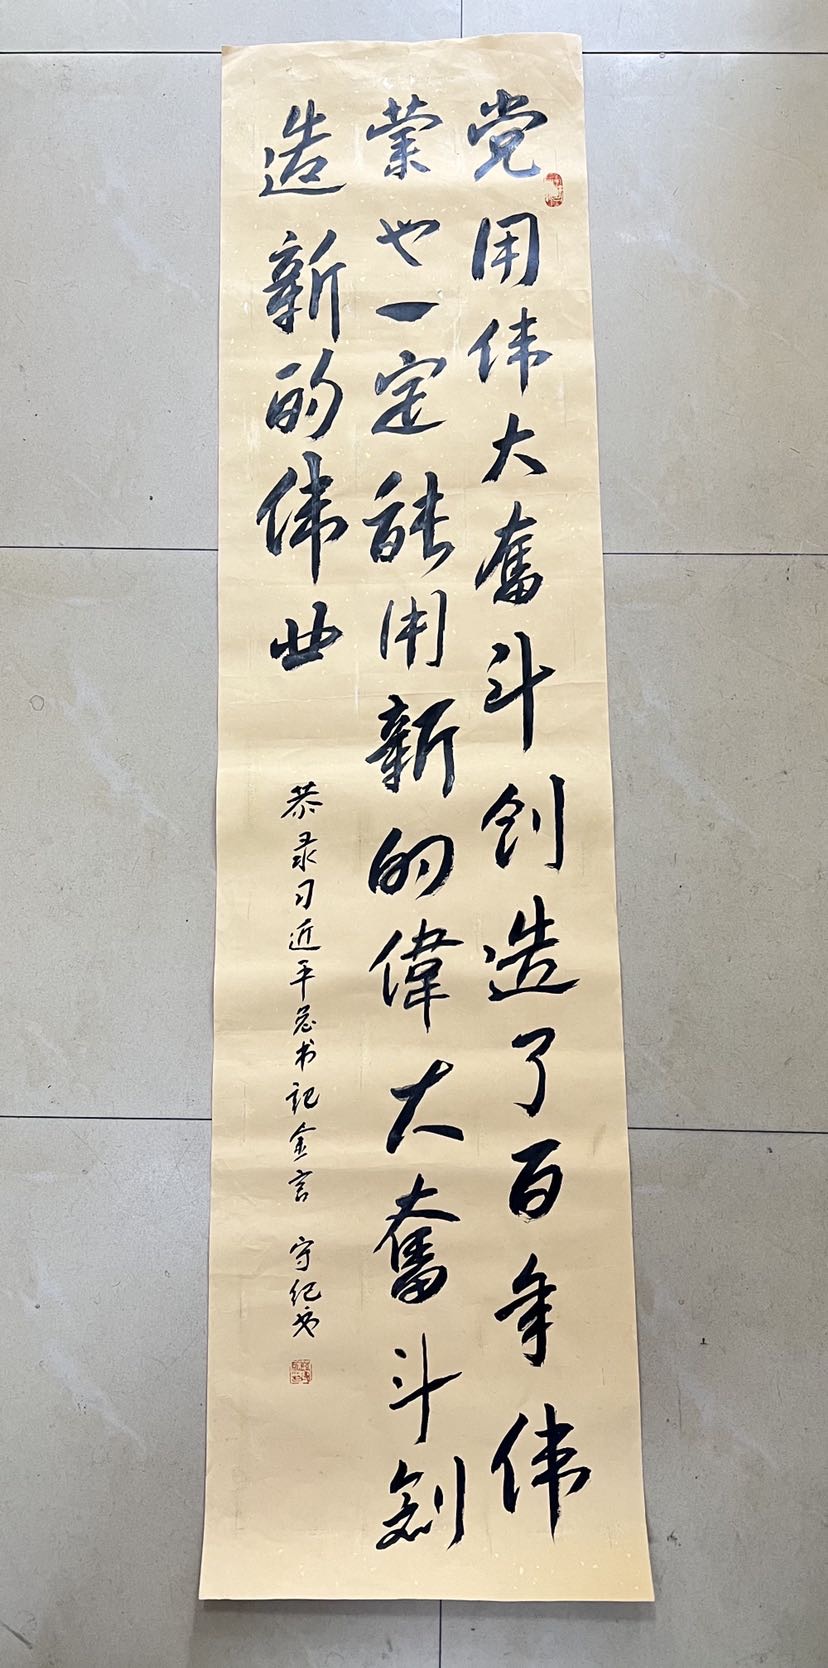 党用伟大奋斗创造了百年伟
業也一定能用新的偉大奮斗創
造新的伟业
恭录习近平总书记金言 守纪书